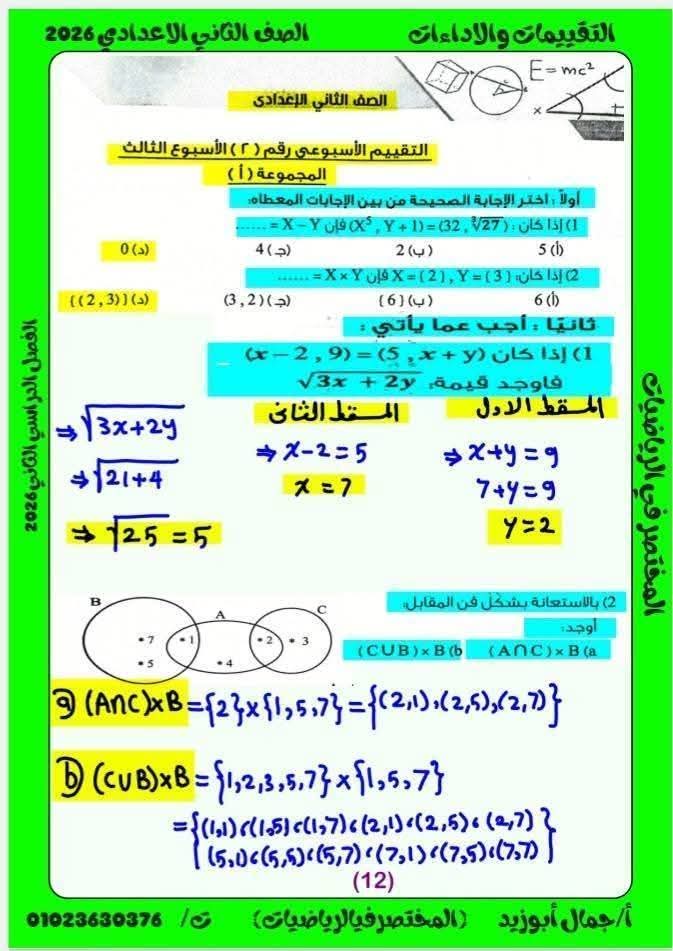 التقييمات والاداءات
الصف الثاني الاعدادي 2026
E = mc²
الصف الثاني الإعدادى
التقييم الأسبوعي رقم (٢) الأسبوع الثالث
المجموعة (أ)
أولاً : أختر الإجابة الصحيحة من بين الإجابات المعطاه:
1) إذا كان : (X⁵ , Y + 1) = (32 , ∛27) فإن X – Y = ......
(أ) 5 (ب) 2 (جـ) 4 (د) 0
2) إذا كان: X = {2} , Y = {3} فإن X × Y = ......
(أ) 6 (ب) {6} (جـ) (3 , 2) (د) {(2 , 3)}
ثانيًا : أجب عما يأتي :
1) إذا كان (x – 2 , 9) = (5 , x + y)
فاوجد قيمة: √3x + 2y
المسقط الاول
⇒ x+y = 9
7+y = 9
y = 2
المسقط الثانى
⇒ x-2 = 5
x = 7
⇒ √3x+2y
⇒ √21+4
⇒ √25 = 5
2) بالاستعانة بشكل فن المقابل:
أوجد:
a) (A∩C) × B b) (C∪B) × B
B A C
7 1 2 3
5 4
a) (A∩C)×B = {2}×{1,5,7} = {(2,1),(2,5),(2,7)}
b) (C∪B)×B = {1,2,3,5,7} × {1,5,7}
= {(1,1),(1,5),(1,7),(2,1),(2,5),(2,7)
(5,1),(5,5),(5,7),(7,1),(7,5),(7,7)}
(12)
أ/جمال أبوزيد (المختصر في الرياضيات) ت/ 01023630376
المختصر في الرياضيات
الفصل الدراسي الثاني 2026